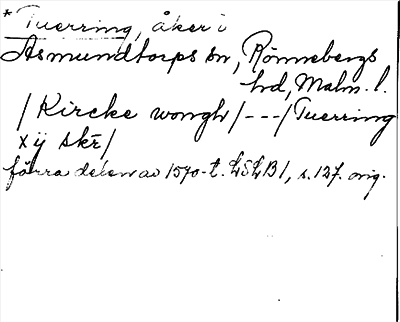 *Tuerring, åker i
Asmundtorps sn, Rönnebergs
hd, Malm. l.
/Kircke wongh/---/Tuerring
x ij skr/
förra delen av 1570-t. LSLB1, s. 127. orig.